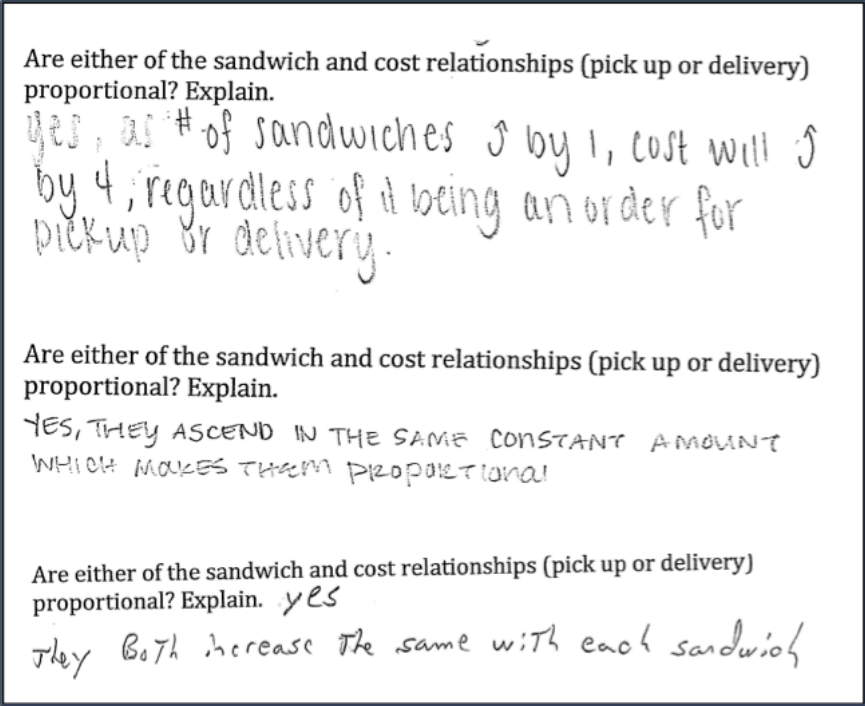 Are either of the sandwich and cost relationships (pick up or delivery)
proportional? Explain.
yes, as # of sandwiches ↑ by 1, cost will ↑
by 4, regardless of it being an order for
pickup or delivery.
Are either of the sandwich and cost relationships (pick up or delivery)
proportional? Explain.
YES, THEY ASCEND IN THE SAME CONSTANT AMOUNT
WHICH MAKES THEM PROPORTIONAl
Are either of the sandwich and cost relationships (pick up or delivery)
proportional? Explain. yes
They Both increase The same with each sandwich